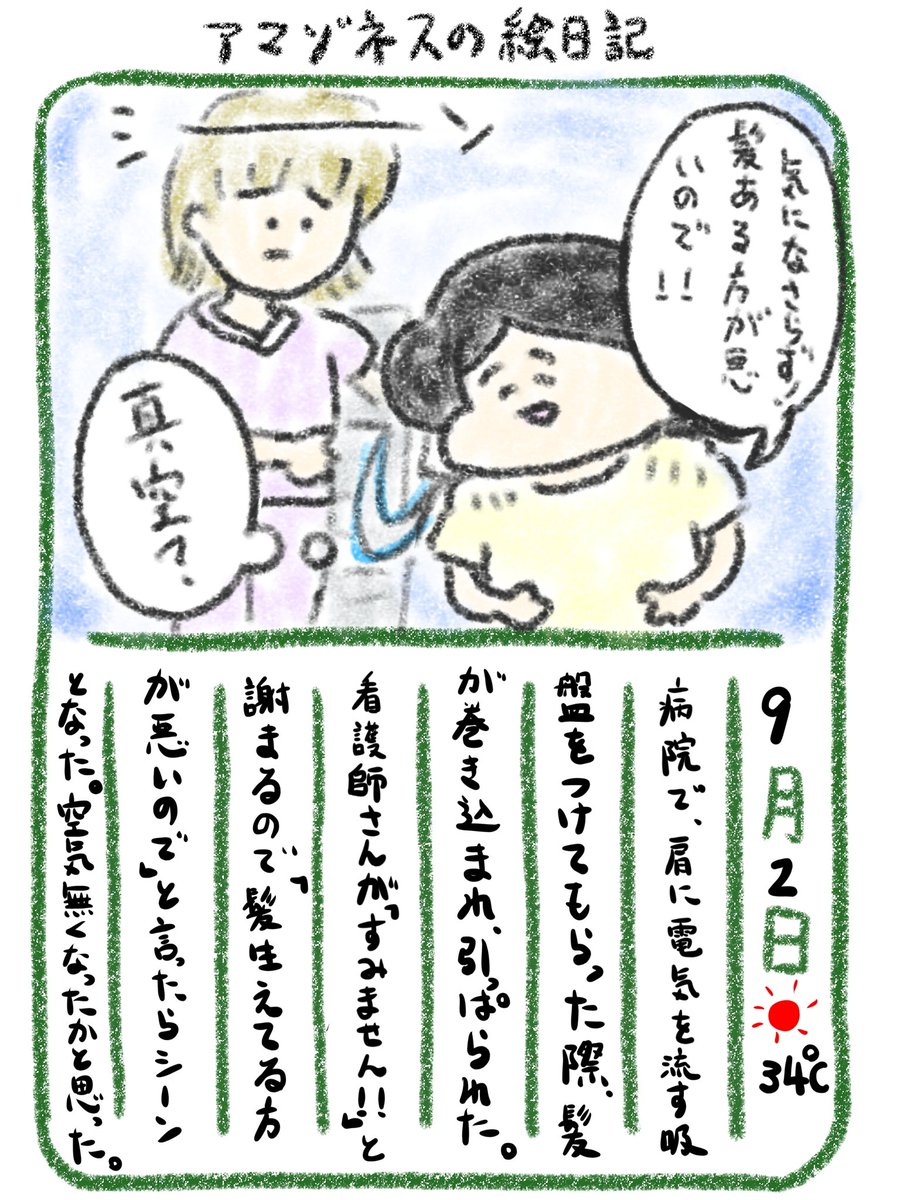 アマゾネスの絵日記
気になさらず!
髪ある方が悪
いので!!
シーン
真空?
9月2日 34℃
病院で、肩に電気を流す吸
盤をつけてもらった際、髪
が巻き込まれ、引っぱられた。
看護師さんが「すみません!!」と
謝まるので「髪生えてる方
が悪いので」と言ったらシーン
となった。空気無くなったかと思った。